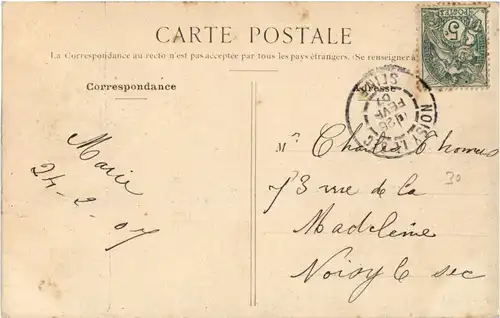 CARTE POSTALE
La Correspondance au recto n'est pas acceptée par tous les pays étrangers. (Se renseigner à
Correspondance
Adresse
Marie
24-2-07
Mr Charles Thomas
73 rue de la
Madeleine
Noisy le sec
30
5
POSTES
NOISY LE SEC
SEINE
FEVR
07